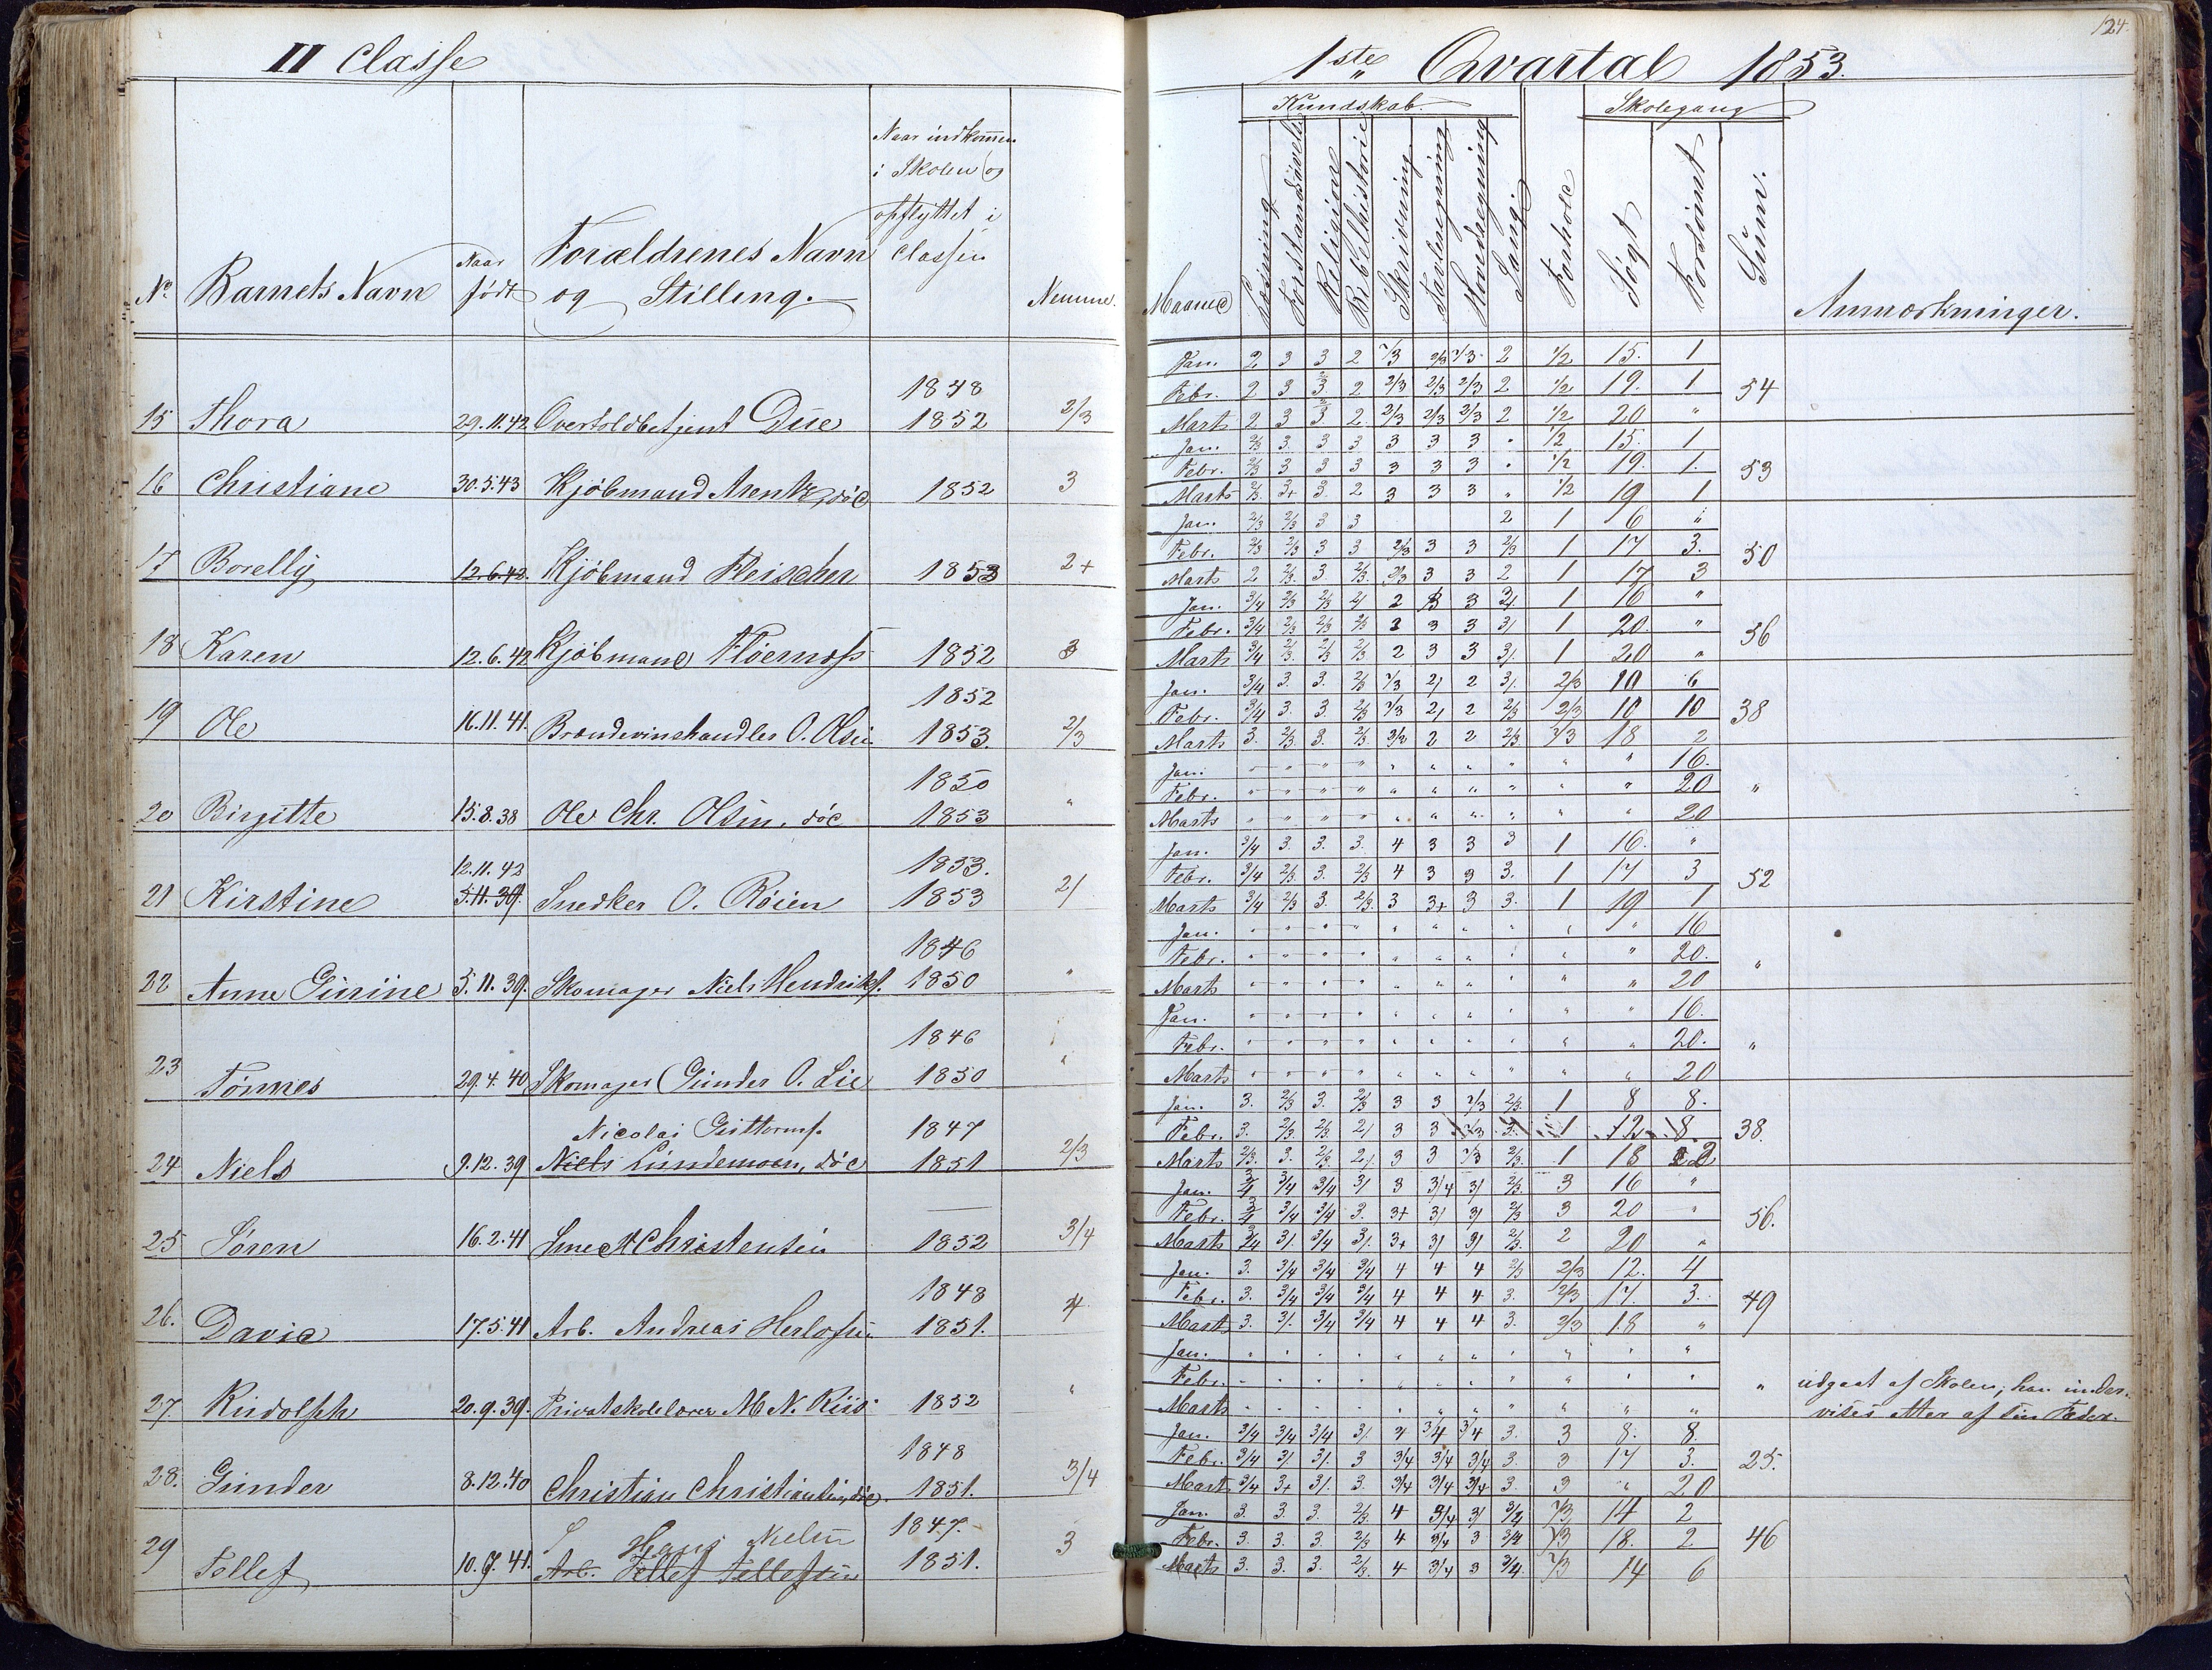 124.
II Classe
1ste Qvartal 1853.
No
Barnets Navn
Naar født
Forældrenes Navn og Stilling.
Naar indkom̄en i Skolen og opflyttet i Classen
Nemme.
Maaned
Kundskab.
Læsning
Forstandsøvelse
Religion
Bibelhistorie
Skrivning
Tavleregning
Hovedregning
Sang.
Forhold
Skolegang
Søgt
Forsømt
Sum.
Anmærkninger.
15 Thora 29.11.42 Overtoldbetjent Due 1848 1852 2/3
Jan. 2 3 3 2 2/3 2/3 2/3 2 1/2 15. 1
Febr. 2 3 3 2 2/3 2/3 2/3 2 1/2 19. 1 54
Marts 2 3 3 2 2/3 2/3 2/3 2 1/2 20 "
16 Christiane 30.5.43 Kjøbmand Arentz, død 1852 3
Jan. 2/3 3. 3 3 3 3 3 " 1/2 15. 1
Febr. 2/3 3 3 3 3 3 3 " 1/2 19. 1. 53
Marts 2/3 3+ 3. 2 3 3 3 " 1/2 19 1
17 Borelly 12.6.42 Kjøbmand Fleischer 1853 2+
Jan. 2/3 2/3 3 3 2 1 6 "
Febr. 2/3 2/3 3 3 2/3 3 3 2/3 1 17 3. 50
Marts 2 2/3 3. 2/3 2/3 3 3 2 1 17 3
18 Karen 12.6.42 Kjøbmand 1852 3
Jan. 3/4 2/3 2/3 2/ 2 3 3 3/ 1 16 "
Febr. 3/4 2/3 2/3 2/3 2 3 3 3/ 1 20. " 56
Marts 3/4 2/3 2/3 2/3 2 3 3 3/. 1 20 "
19 Ole 16.11.41. Brændevinshandler O. Olsen 1852 1853. 2/3
Jan. 3/4 3. 3. 2/3 2/3 2/ 2 3/. 2/3 10 6
Febr. 3/4 3 3. 2/3 2/3 2/ 2 2/3 2/3 10 10 38
Marts 3. 2/3 3. 2/3 3/2 2 2 2/3 2/3 18 2
20 Birgitte 15.8.38 Ole Chr. Olsen, død 1850 1853 "
Jan. " " " " " " " " " " 16.
Febr. " " " " " " " " " " 20 "
Marts " " " " " " " " " " 20
21 Kirstine 12.11.42 5.11.39. Snedker O. Røien 1853. 1853 2/
Jan. 3/4 3. 3. 3. 4 3 3 3 1 16. "
Febr. 3/4 2/3 3. 2/3 4 3 3 3. 1 17 3 52
Marts 3/4 2/3 3. 2/3 3 3+ 3 3. 1 19 1
22 Anne Gurine 5.11.39. Skomager Niels Hendriks. 1846 1850 "
Jan. " " " " " " " " " " 16
Febr. " " " " " " " " " " 20. "
Marts " " " " " " " " " " 20
23 Tønnes 29.4.40 Skomager Gunder O. Lie 1846 1850 "
Jan. " " " " " " " " " " 16.
Febr. " " " " " " " " " " 20. "
Marts " " " " " " " " " " 20
24 Niels 9.12.39 Nicolai Guttorms. Niels Lundemoen, død 1847 1851 2/3
Jan. 3. 2/3 3. 2/3 3 3 2/3 2/3 1 8 8.
Febr. 3. 2/3 2/3 2/ 3 3 2/3 3. 1 12 8 38.
Marts 2/3 3. 2/3 2/. 3 3 2/3 2/3 1 18 2
25 Søren 16.2.41 Smed Christensen 1852 3/4
Jan. 3/4 3/4 3/4 3/ 3 3/4 3/ 2/3 3 16 "
Febr. 3/4 3/4 3/4 3. 3+ 3/ 3/ 2/3 3 20 " 56.
Marts 3/4 3/. 3/4 3/. 3+ 3/ 3/ 2/3 2 20 "
26. David 17.5.41 Arb. Andreas Herlofsen 1848 1851. 4
Jan. 3. 3/4 3/4 3/4 4 4 4 2/3 2/3 12. 4
Febr. 3. 3/4 3/4 3/4 4 4 4 3. 2/3 17. 3. 49
Marts 3. 3/. 3/4 3/4 4 4 4 3. 2/3 18 "
27. Rudolph 20.9.39. Privatskolelærer M N. Riis. 1852 "
Jan. " " " " " " " " " " "
Febr. " " " " " " " " " " " " udgaat af Skolen; han under-
Marts " " " " " " " " " " " vises etter af sin Fader.
28. Gunder 8.12.40 Christian Christiansen, død. 1848 1851. 3/4
Jan. 3/4 3/4 3/4 3/ 4 3/4 3/4 3. 3 8. 8.
Febr. 3/4 3/ 3/. 3 3/4 3/4 3/4 3. 3 17 3. 25.
Marts 3/4 3+ 3/. 3. 3/4 3/4 3/4 3. 3 " 20
29 Tollef 10.9.41. Hans Nielsen Arb. Tellef Tellefsen 1847. 1851. 3
Jan. 3. 3. 3. 2/3 4 3/4 3/ 3/4 2/3 14 2
Febr. 3. 3. 3. 2/3 4 3/4 3 3/4 2/3 18. 2 46
Marts 3. 3. 3. 2/3 4 3/4 3 3/4 2/3 14 6